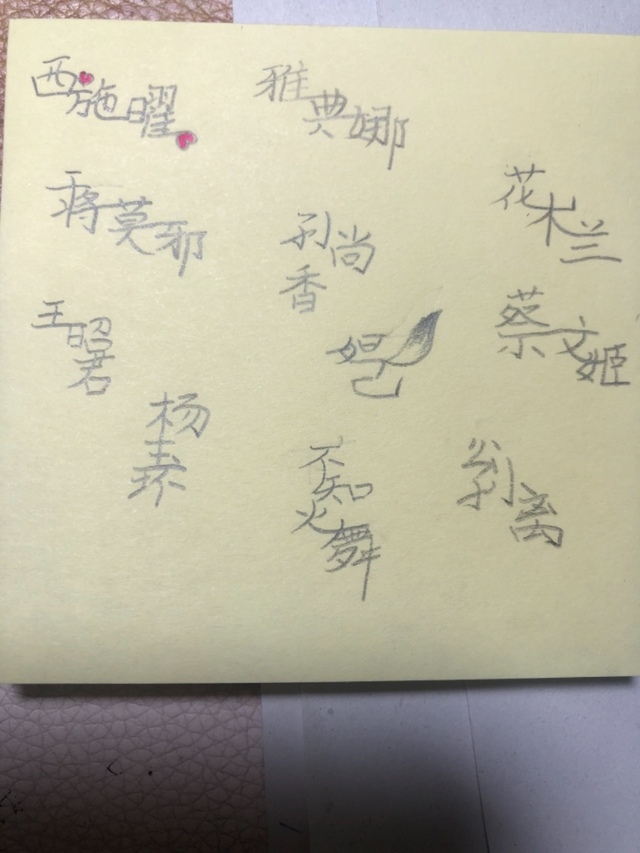 西施曜
雅典娜
干将莫邪
花木兰
孙尚香
王昭君
蔡文姬
妲己
杨玉环
不知火舞
公孙离